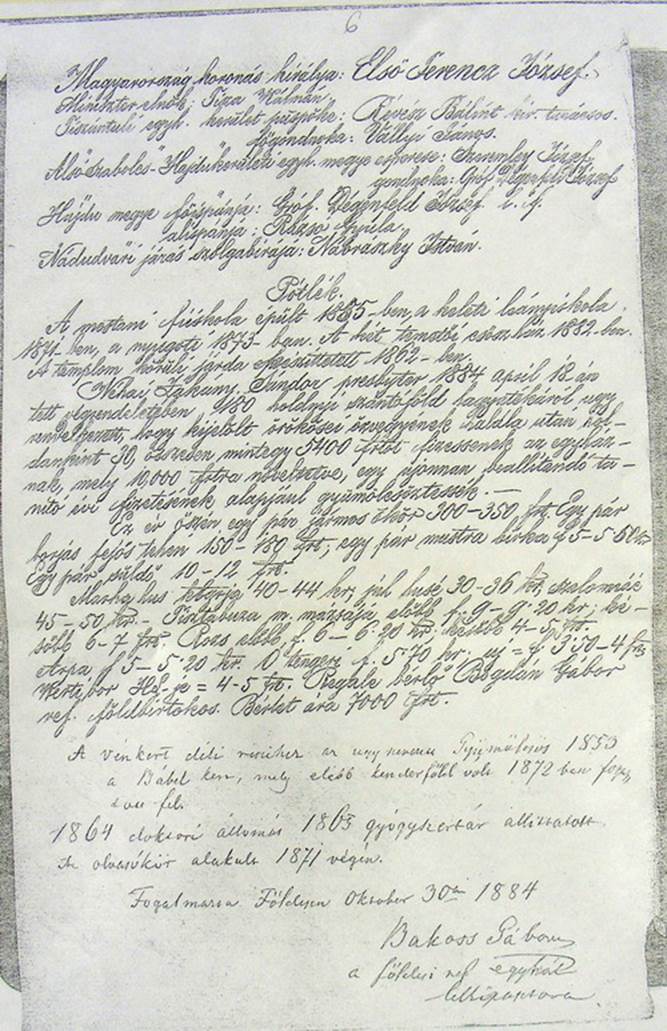 6
Magyarország koronás királya: Első Ferencz József.
Miniszter elnök: Tisza Kálmán.
Tiszántúli egyh. kerület püspöke: Révész Bálint kir. tanácsos.
főgondnoka: Vállyi János.
Alsószabolcs-Hajdukerületi egyh. megye esperese: Szeremley József,
gondnoka: Gróf Degenfeld József
Hajdu megye főispánja: Gróf. Dégenfeld József i. f.
alispánja: Rásó Gyula.
Nádudvari járás szolgabirája: Nábrászky István.
Pótlék.
A mostani fiúiskola épült 1885-ben, a keleti leányiskola
1871-ben, a nyugoti 1873-ban. A két temetői csősz ház 1882-ben.
A templom körüli járda készíttetett 1862-ben.
Néhai Zákány Sándor presbyter 1884 april 18-án
tett végrendeletében 9/180 holdnyi szántóföld hagyatékáról ugy
rendelkezett, hogy kijelölt örökösei özvegyének halála után hol-
danként 30, összesen mintegy 5400 frtot fizessenek az egyház-
nak, mely 10,000 frtra növeltetve, egy ujonnan beállitandó ta-
nitó évi fizetésének alapjául gyümölcsöztessék. —
Ez év őszén egy pár jármos ökör 300-350, frt. Egy pár
borjas fejős tehén 150-180 frt; egy pár mustra birka f 5-5·60 kr
Egy pár süldő 10-12 frt.
Marha hus kilgrja 40-44 kr, juh husé 30-36 kr, szalonnáé
45-50 kr. - Tisztabuza m. mázsája előbb f. 9-9·20 kr; ké-
sőbb 6-7 frt Rozs előbb f. 6-6·20 kr. később 4-5 frt.
Árpa f 5-5·20 kr. O tengeri f. 5·70 kr. uj = f 3·50-4 frt
Kertibor Hl-je = 4-5 frt. Regále bérlő Bogdán Gábor
ref. földbirtokos. Bérlet ára 7000 frt.
A vénkert déli részéhez az ugy nevezett Gyümölcsös 1853
a Bábel kert, mely előbb kenderföld volt 1872 ben
fel.
1864 doktori állomás 1863 gyógyszertár állittatott
Az olvasókör alakult 1871 végén.
Fogalmazva Földesen Oktober 30án 1884
Bakoss Gábor
a földesi ref egyház
lelkipásztora